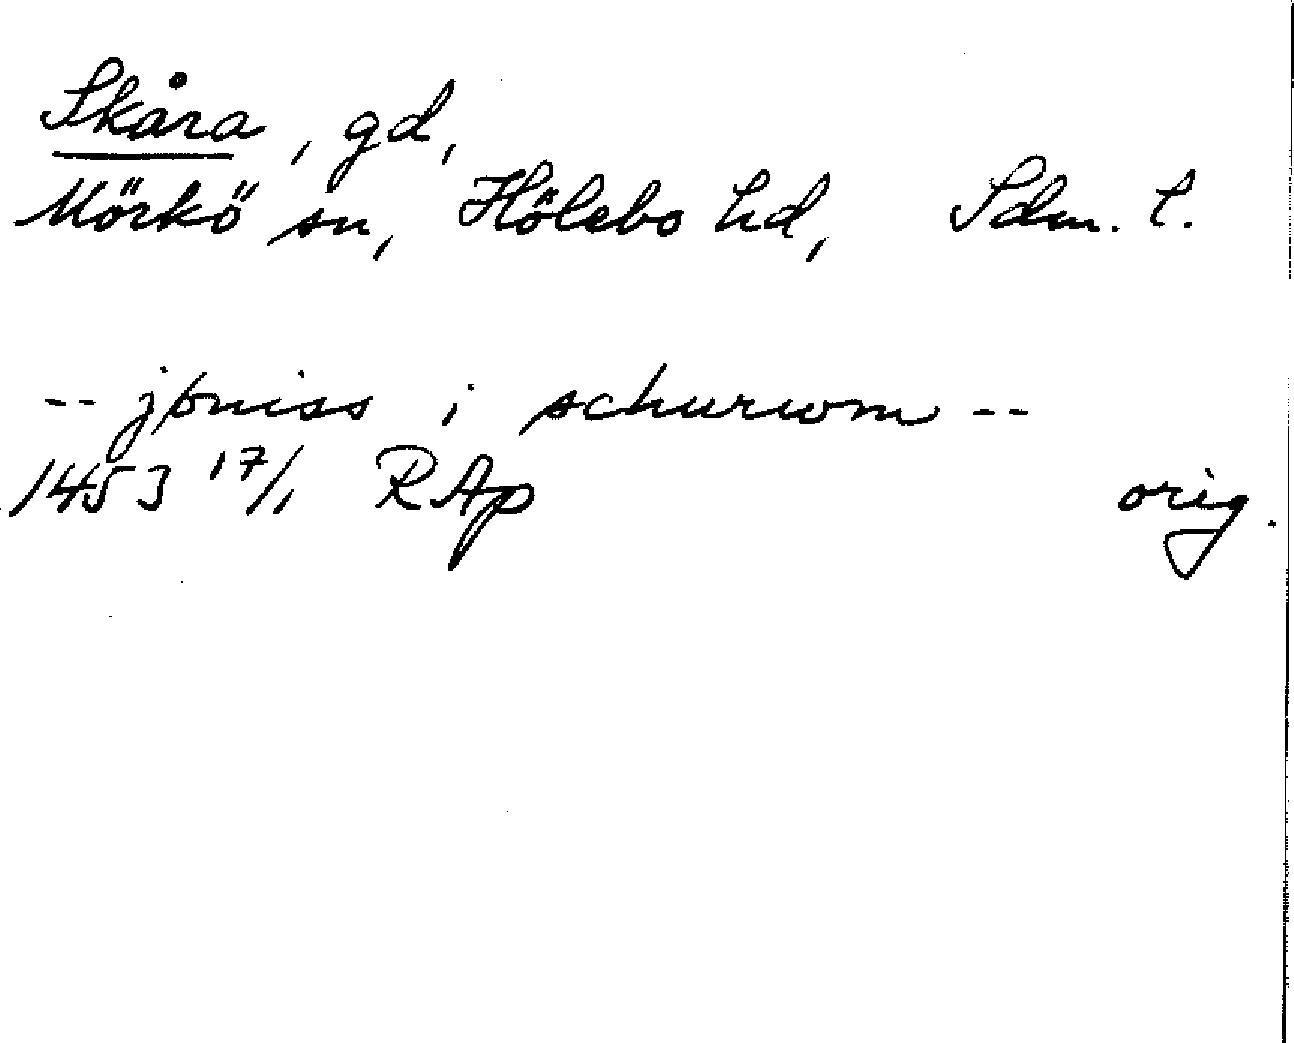 Skåra, gd,
Mörkö sn, Hölebo hd, Sdm. l.
-- jöniss i schurwm --
1453 17/1 RAp orig.